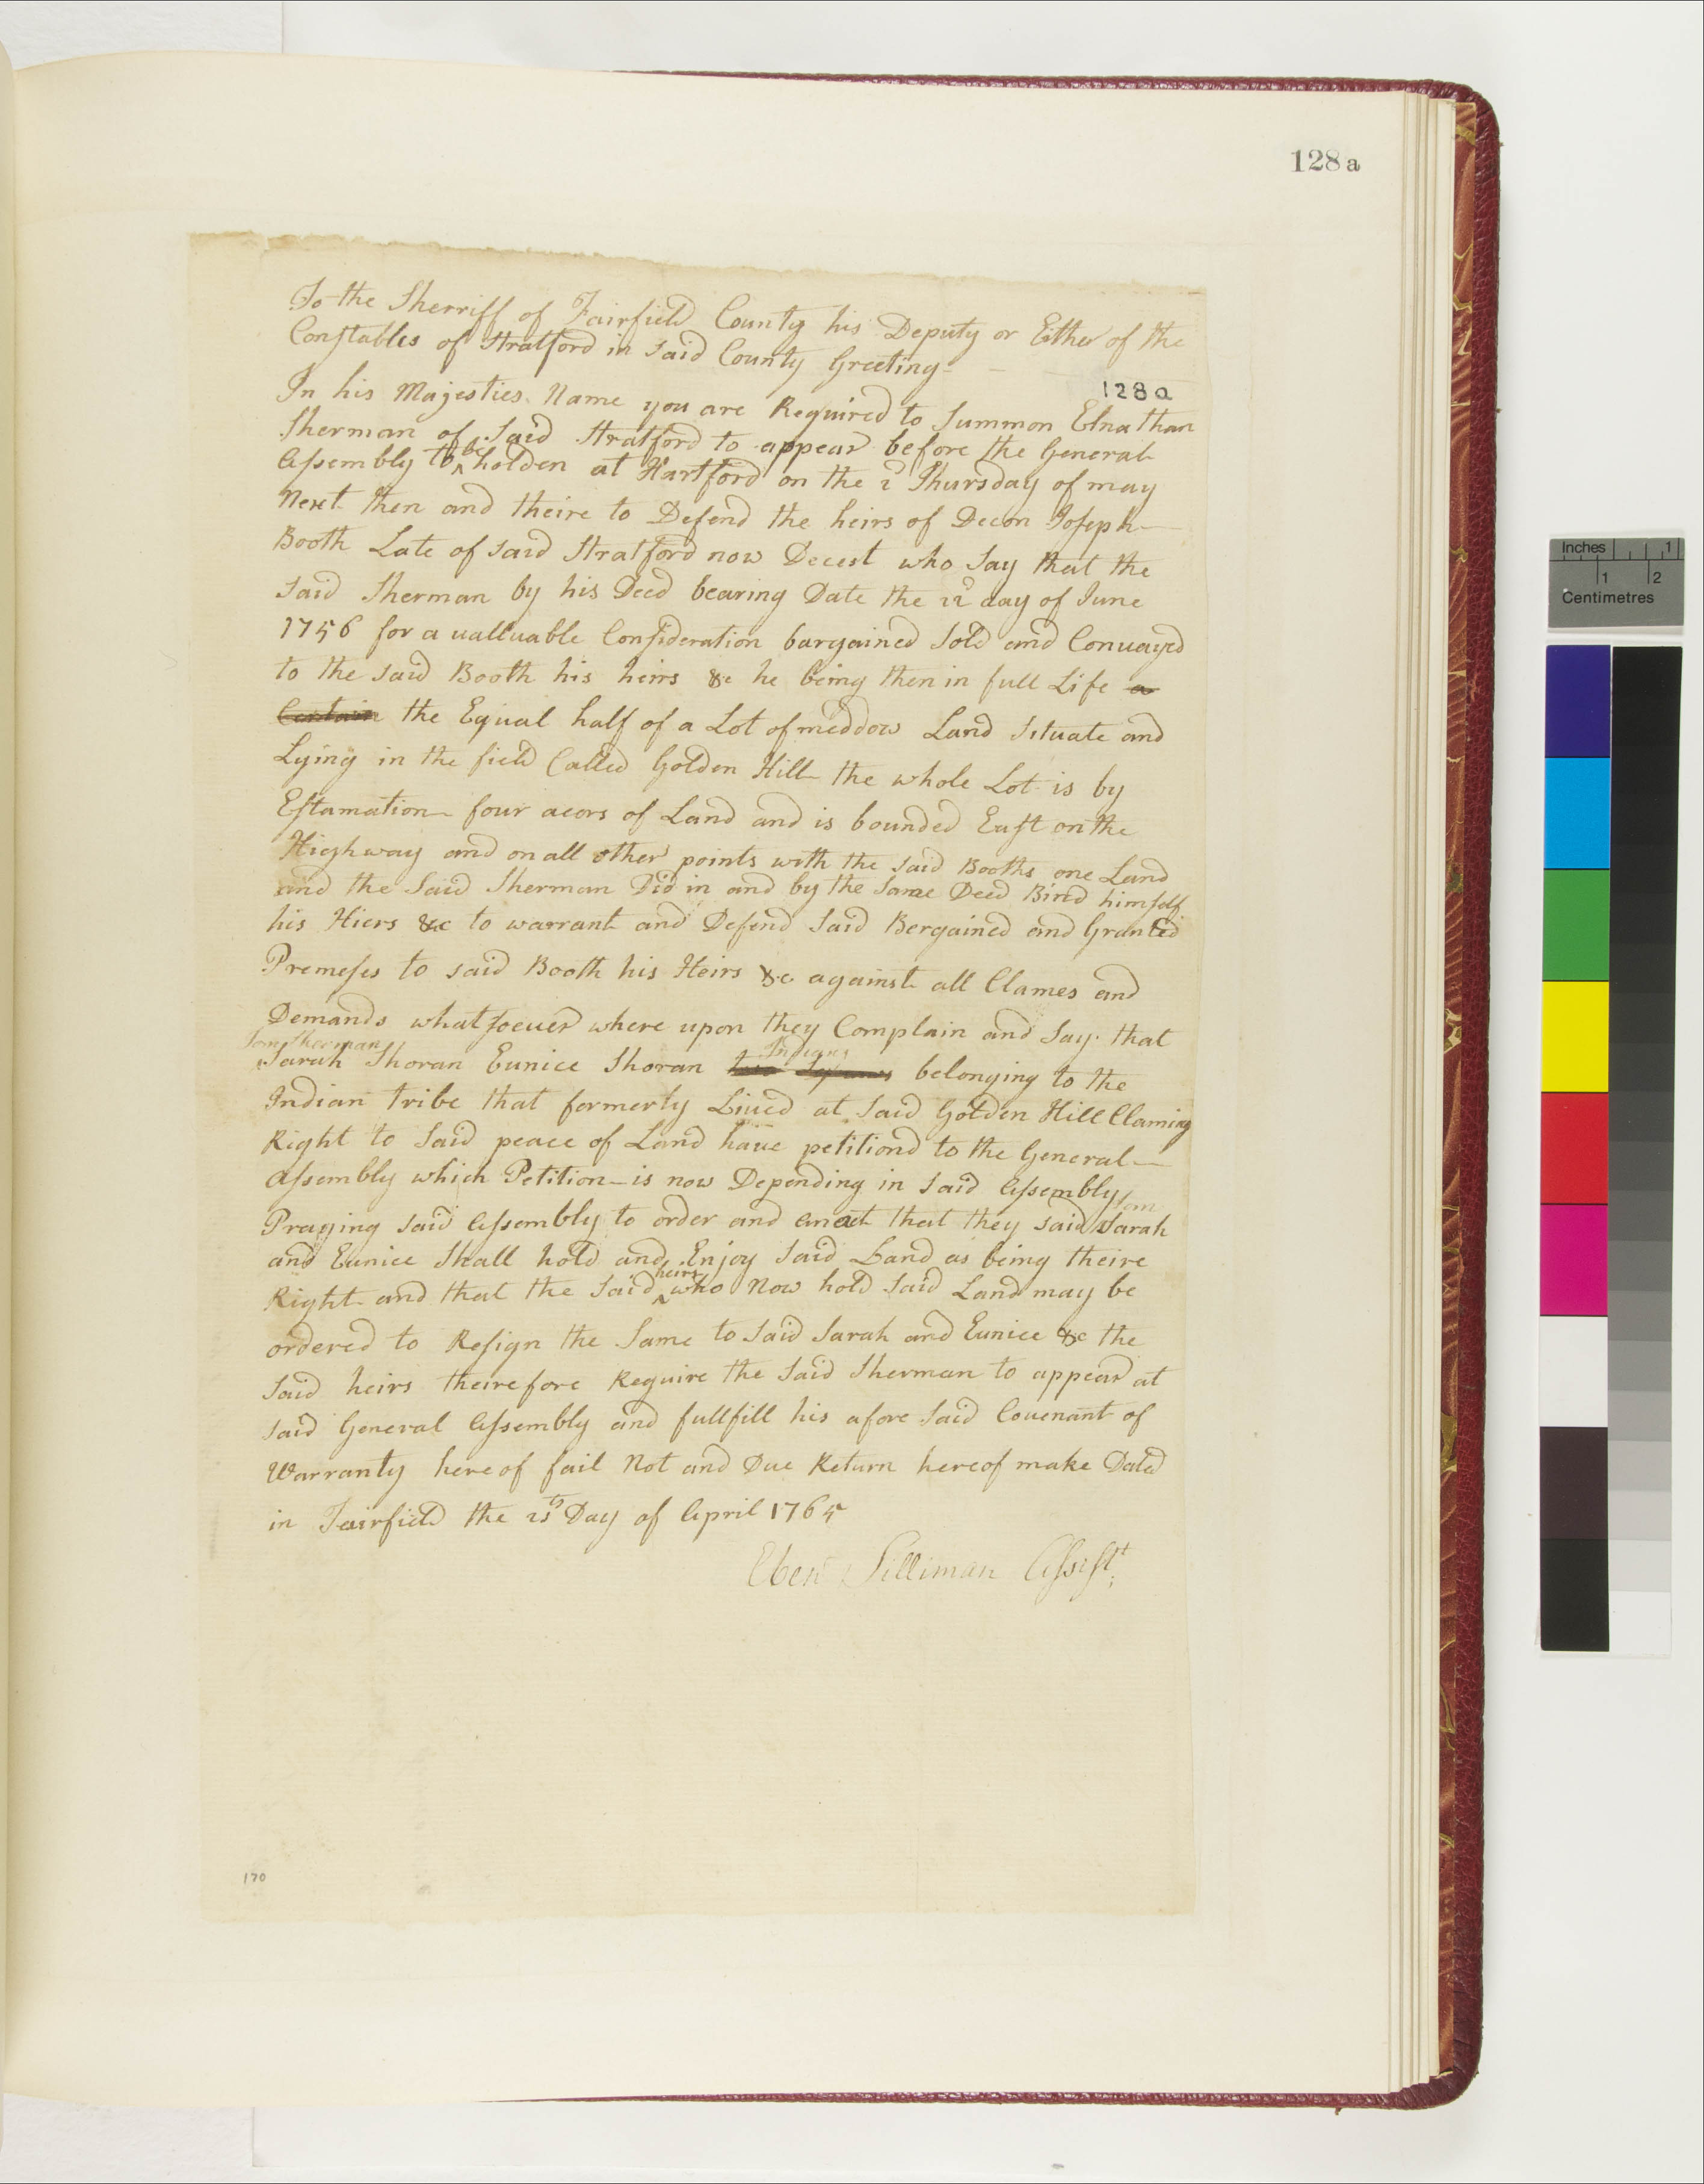 128a
To the Sherriff of Fairfield County his Deputy or Either of the
Constables of Stratford in said County Greeting
128a
In his Majesties Name you are Required to Summon Elnathan
Sherman of Said Stratford to appear before the General
Assembly to be holden at Hartford on the 2d Thursday of may
Next then and theire to Defend the heirs of Decon Joseph
Booth Late of said Stratford now Decest who Say that the
said Sherman by his Deed bearing Date the 22d day of June
1756 for a valluable Consideration bargained Sold and Convayed
to the said Booth his heirs &c he being then in full Life a
Certain the Equal half of a Lot of meddow Land Situate and
Lying in the field Called Golden Hill the whole Lot is by
Estamation four acors of Land and is bounded East on the
Highway and on all other points with the said Booths one Land
and the Said Sherman Did in and by the Same Deed Bind himself
his Hiers &c to warrant and Defend Said Bergained and Granted
Premeses to said Booth his Heirs &c against all Clames and
Demands whatsoever where upon they Complain and Say that
Tom Sherman
Sarah Shoran Eunice Shoran two Indians belonging to the
Indian tribe that formerly Lived at Said Golden Hill Claming
Right to Said peace of Land have petitiond to the General
Assembly which Petition is now Depending in Said Assembly
Praying said Assembly to order and enact that they said Tom Sarah
and Eunice Shall hold and Enjoy Said Land as being theire
Right and that the Said heirs who Now hold Said Land may be
ordered to Resign the Same to Said Sarah and Eunice &c the
Said heirs theirefore Require the Said Sherman to appear at
said General Assembly and fullfill his afore Said Covenant of
Warranty here of fail Not and Due Return hereof make Dated
in Fairfield the 25th Day of April 1765
Ebenr Silliman Assist;
170
Inches 1
1 2
Centimetres